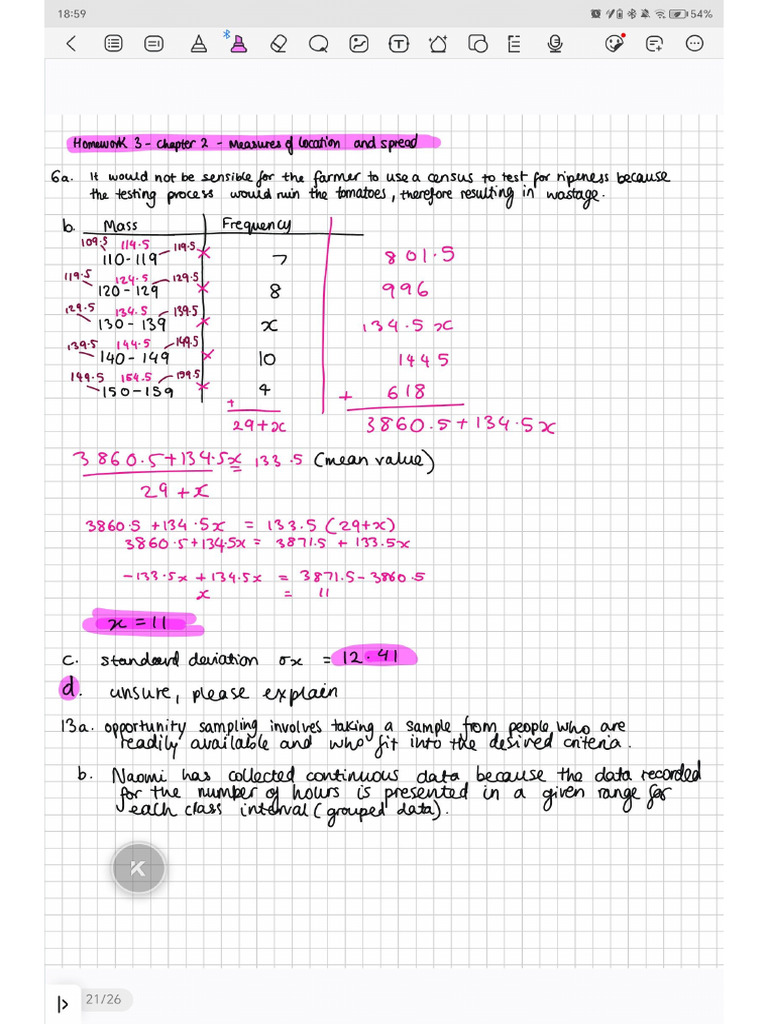 18:59
54%
Homework 3 - Chapter 2 - Measures of location and spread
6a. It would not be sensible for the farmer to use a census to test for ripeness because
the testing process would ruin the tomatoes, therefore resulting in wastage.
b. Mass Frequency
109.5 114.5 119.5
110-119 7 801.5
119.5 124.5 129.5
120-129 8 996
129.5 134.5 139.5
130-139 x 134.5x
139.5 144.5 149.5
140-149 10 1445
149.5 154.5 159.5
150-159 4 + 618
+
29+x 3860.5+134.5x
3860.5+134.5x = 133.5 (mean value)
29+x
3860.5+134.5x = 133.5(29+x)
3860.5+134.5x = 3871.5+133.5x
-133.5x+134.5x = 3871.5-3860.5
x = 11
x = 11
c. standard deviation σx = 12.41
d. unsure, please explain
13a. opportunity sampling involves taking a sample from people who are
readily available and who fit into the desired criteria.
b. Naomi has collected continuous data because the data recorded
for the number of hours is presented in a given range for
each class interval (grouped data).
K
21/26